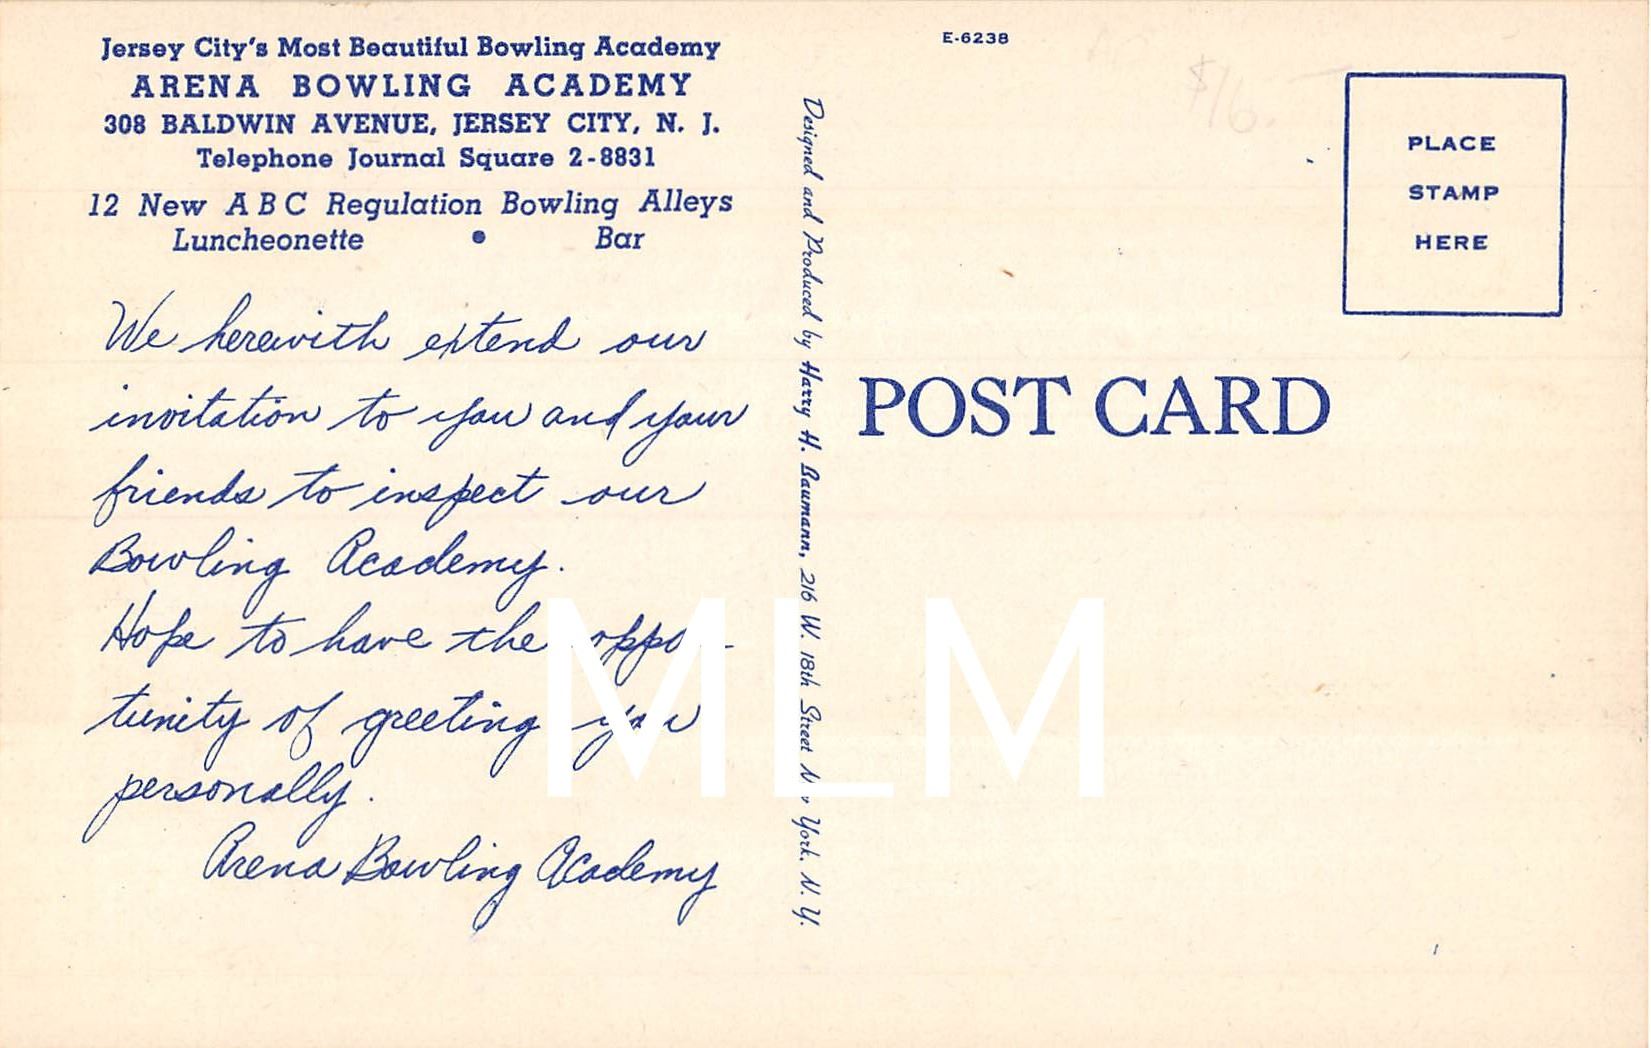 Jersey City's Most Beautiful Bowling Academy
ARENA BOWLING ACADEMY
308 BALDWIN AVENUE, JERSEY CITY, N. J.
Telephone Journal Square 2-8831
12 New A B C Regulation Bowling Alleys
Luncheonette • Bar
We herewith extend our
invitation to you and your
friends to inspect our
Bowling Academy.
Hope to have the oppor-
tunity of greeting you
personally.
Arena Bowling Academy
Designed and Produced by Harry H. Baumann, 216 W. 18th Street New York, N. Y.
E-6238
$16.—
PLACE
STAMP
HERE
POST CARD
MLM